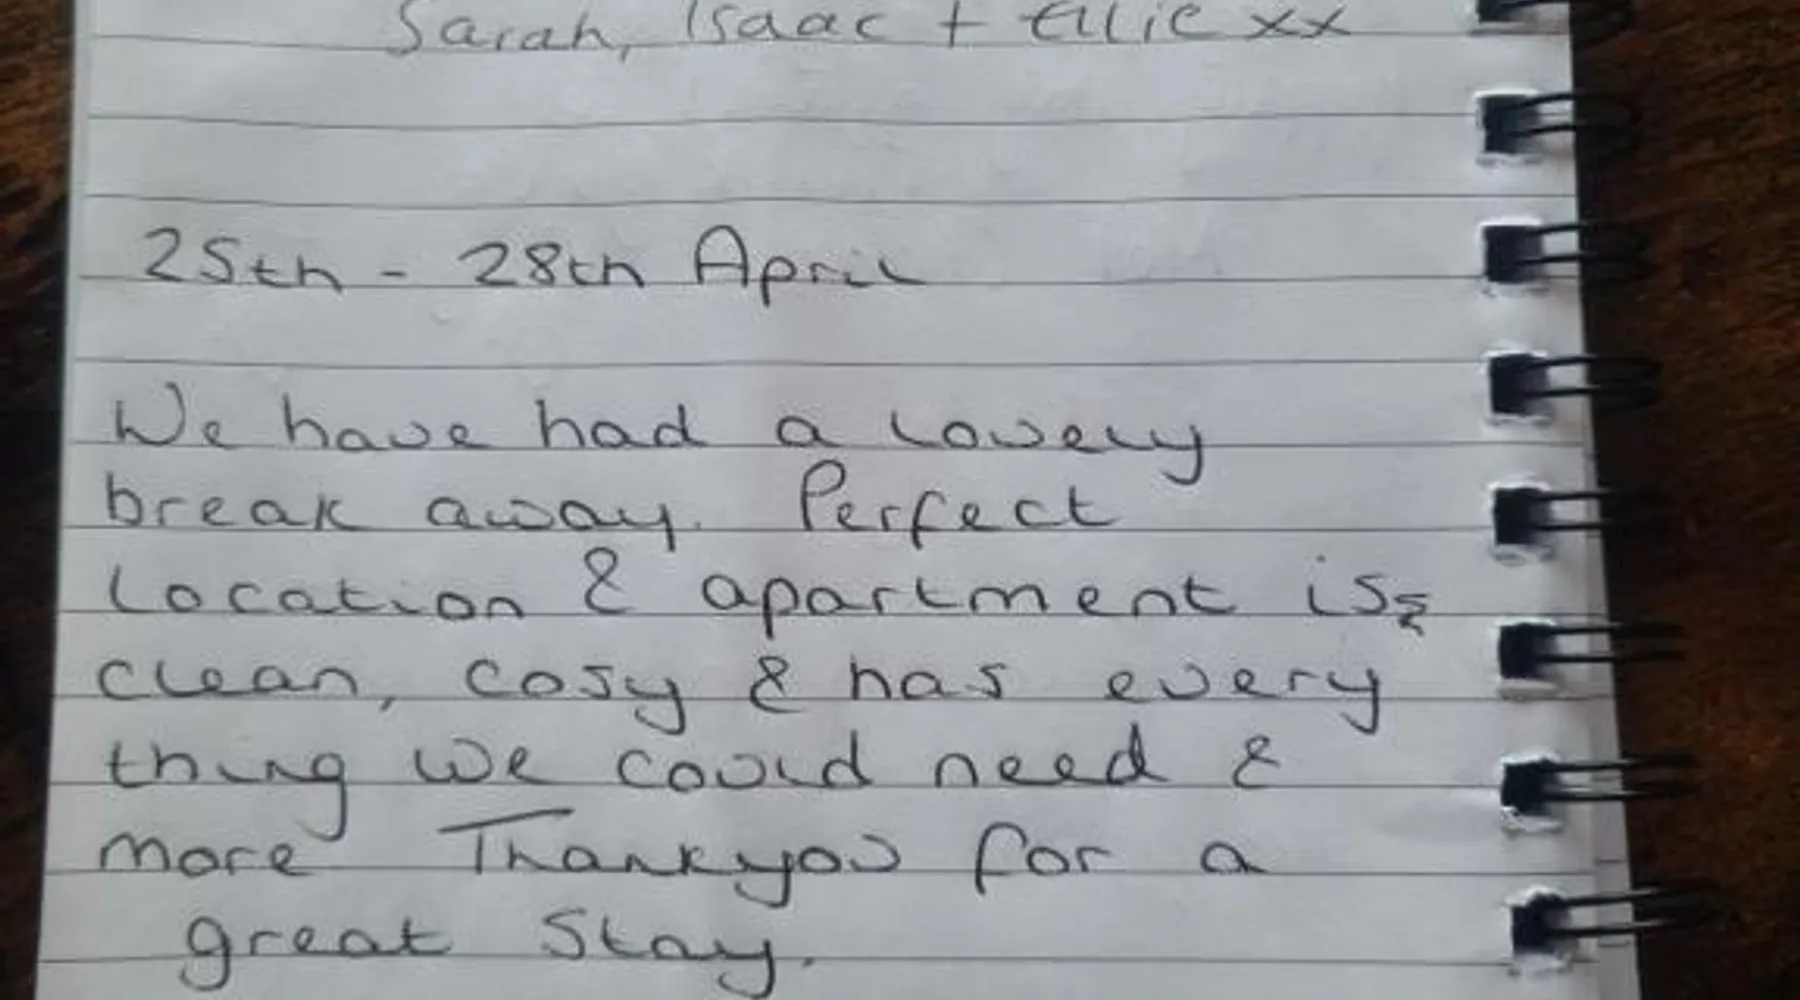 Sarah, Isaac + Ellie xx
25th - 28th April
We have had a lovely
break away. Perfect
location & apartment is
clean, cosy & has every
thing we could need &
more Thankyou for a
great stay.